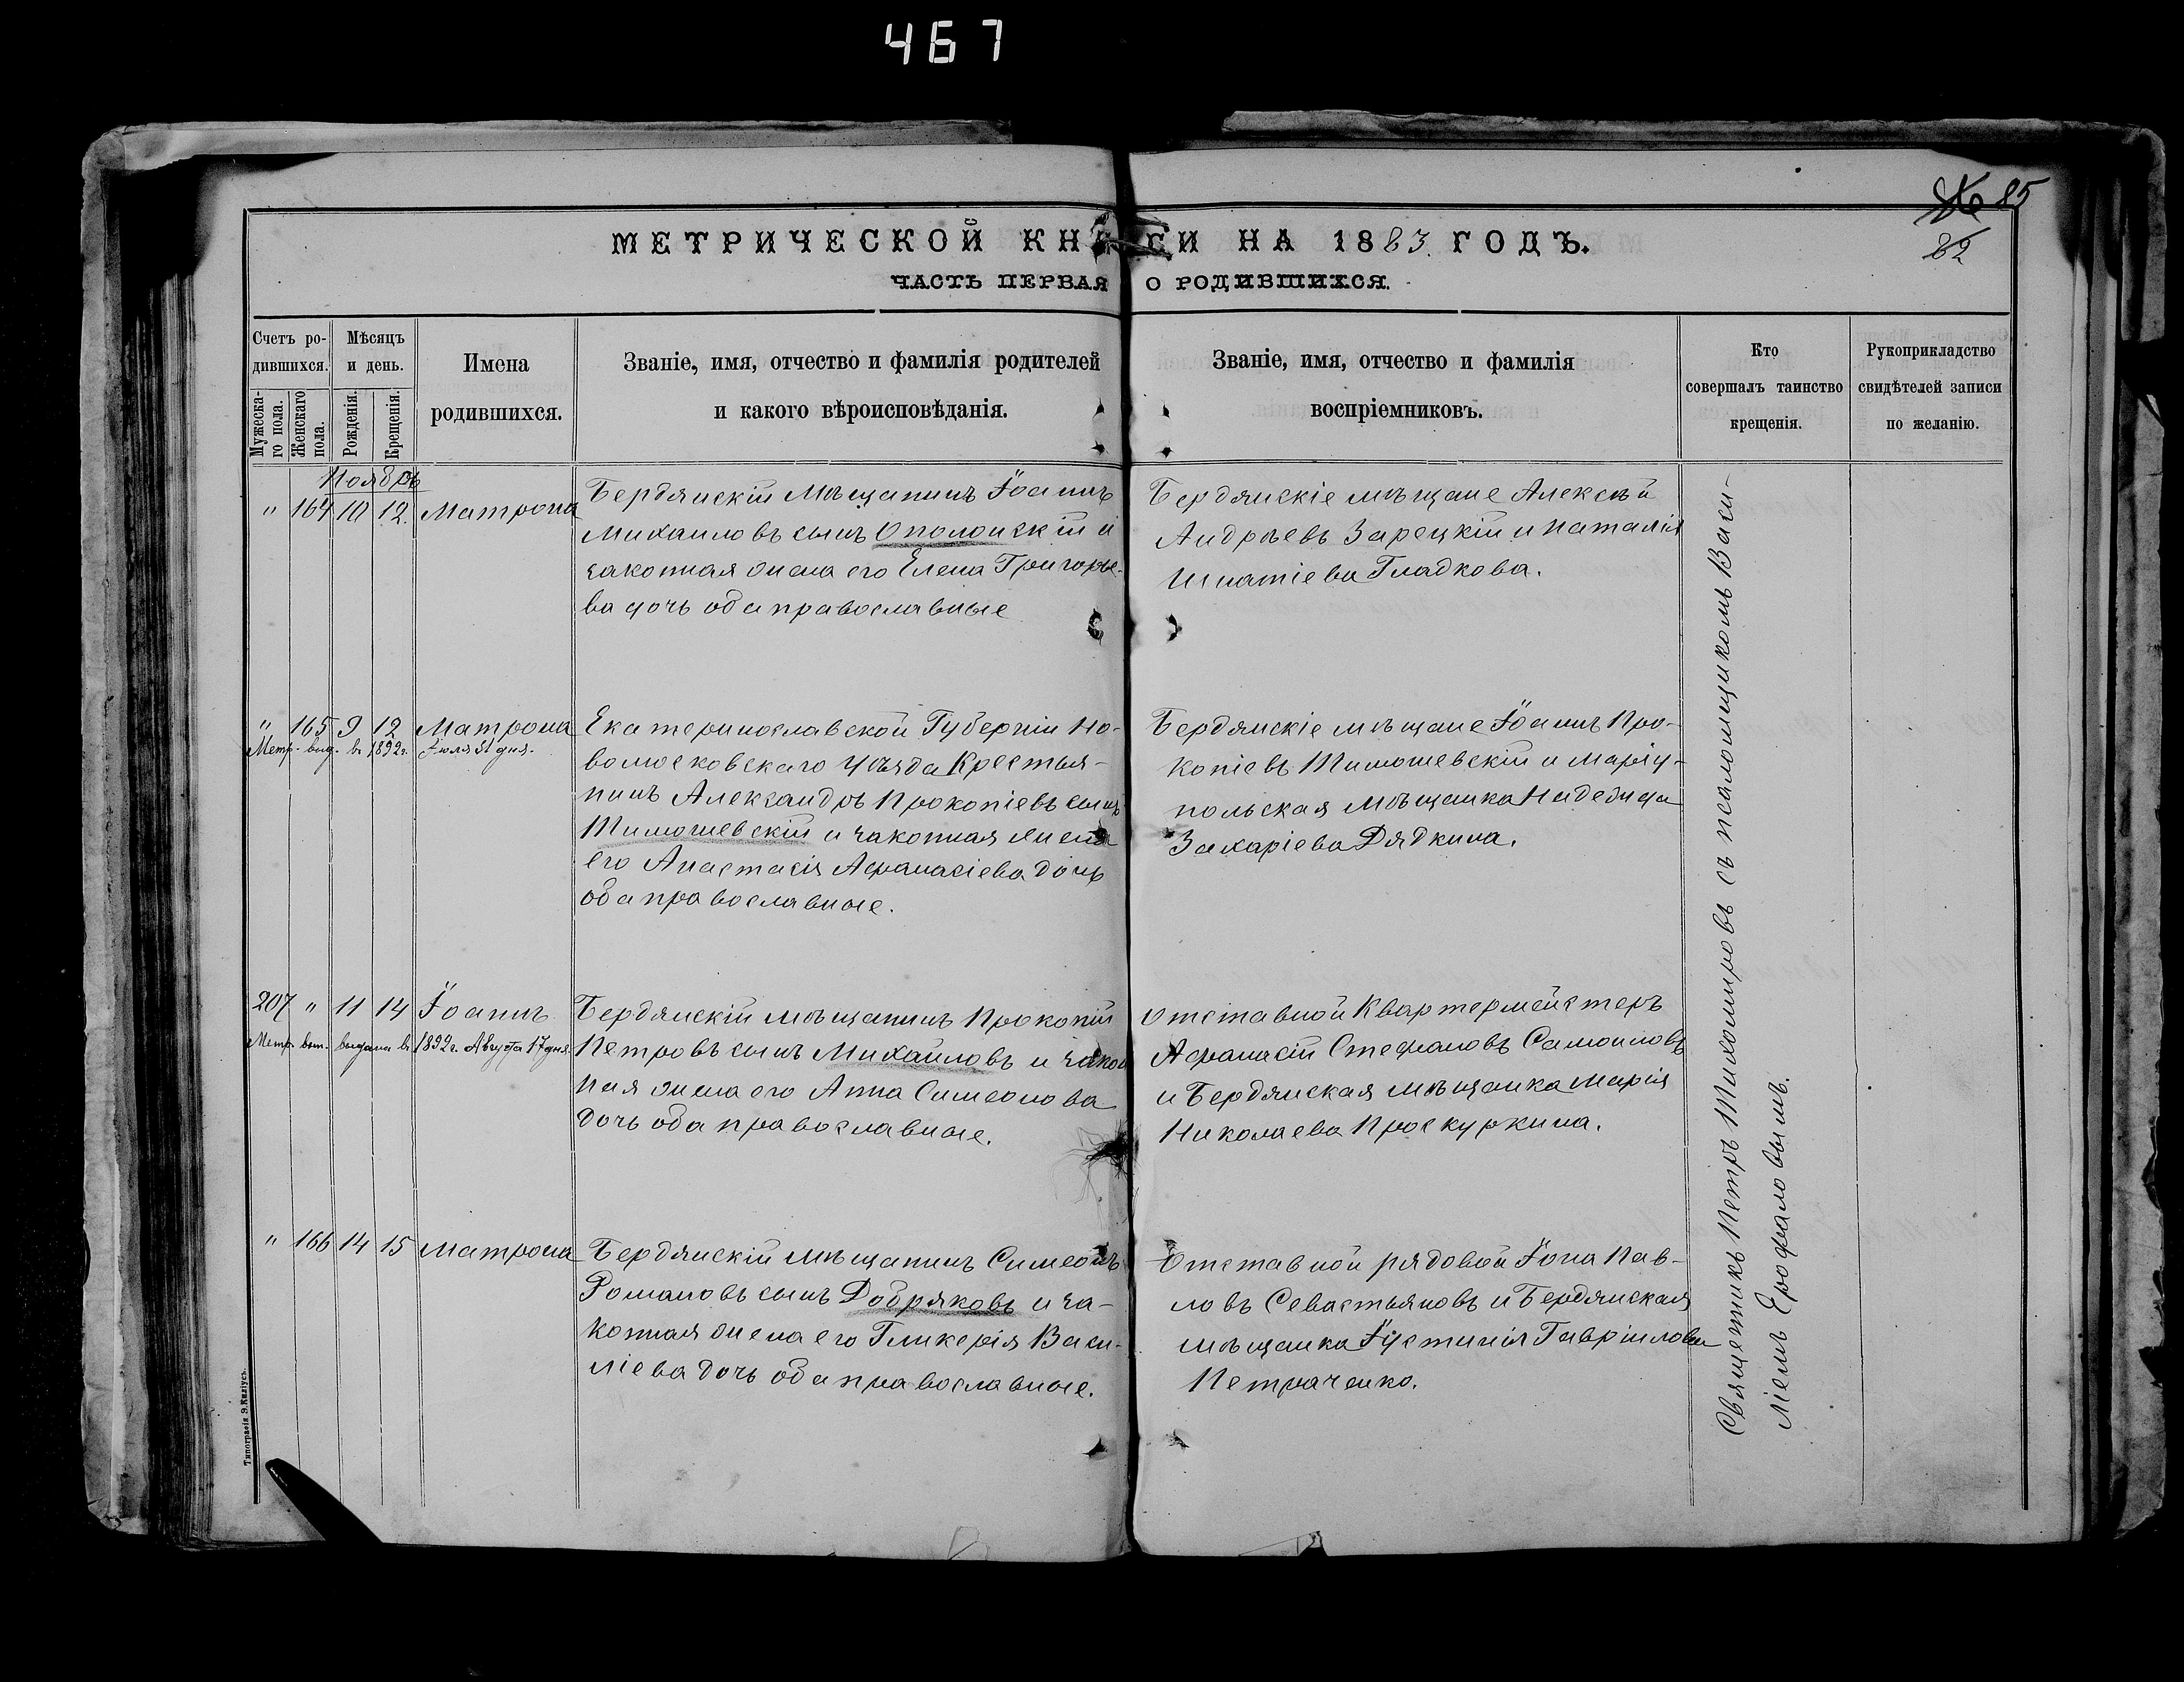 467
85
82
МЕТРИЧЕСКОЙ КНИ СИ НА 1883 ГОДЪ.
ЧАСТЬ ПЕРВАЯ О РОДИВШИХСЯ.
Счетъ ро-
дившихся.
Мужеска-
го пола.
Женскаго
пола.
Мѣсяцъ
и день.
Рожденія.
Крещенія.
Имена
родившихся.
Званіе, имя, отчество и фамилія родителей
и какого вѣроисповѣданія.
Званіе, имя, отчество и фамилія
воспріемниковъ.
Кто
совершалъ таинство
крещенія.
Рукоприкладство
свидѣтелей записи
по желанію.
Ноябрь
" 164 10 12. Матрона
Бердянскій Мѣщанинъ Іоаннъ
Михаиловъ сынъ Ополонскій и
законная жена его Елена Григорье-
ва дочь оба православные
Бердянскіе мѣщане Алексѣй
Андрѣевъ Зарецкій и Наталія
Игнатіева Гладкова.
" 165 9 12 Матрона
Метр. выд. въ 1892г. Іюля 31 дня.
Екатеринославской Губерніи Но-
вомосковскаго Уѣзда Крестья-
нинъ Александръ Прокопіевъ сынъ
Тимошевскій и законная жена
его Анастасія Афанасіева дочь
оба православные.
Бердянскіе мѣщане Іоаннъ Про-
копіевъ Тимошевскій и Маріу-
польская Мѣщанка Надежда
Захаріева Дядкина.
207 " 11 14 Іоаннъ
Метр. вып. выдана въ 1892г. Августа 17 дня.
Бердянскій мѣщанинъ Прокопій
Петровъ сынъ Михайловъ и закон
ная жена его Анна Симеонова
дочь оба православные.
Отставной Квартермейстеръ
Афанасій Стефановъ Самоиловъ
и Бердянская мѣщанка Марія
Николаева Проскуркина.
" 166 14 15 Матрона
Бердянскій мѣщанинъ Симеонъ
Романовъ сынъ Добряковъ и за-
конная жена его Гликерія Васи-
ліева дочь оба православные.
Отставной рядовой Іона Пав-
ловъ Севастьяновъ и Бердянская
мѣщанка Іустинія Гавріилова
Петраченко.
Священникъ Петръ Тихомировъ съ псаломщикомъ Васи-
ліемъ Ерофаловымъ.
Типографія Э. Килiусъ.